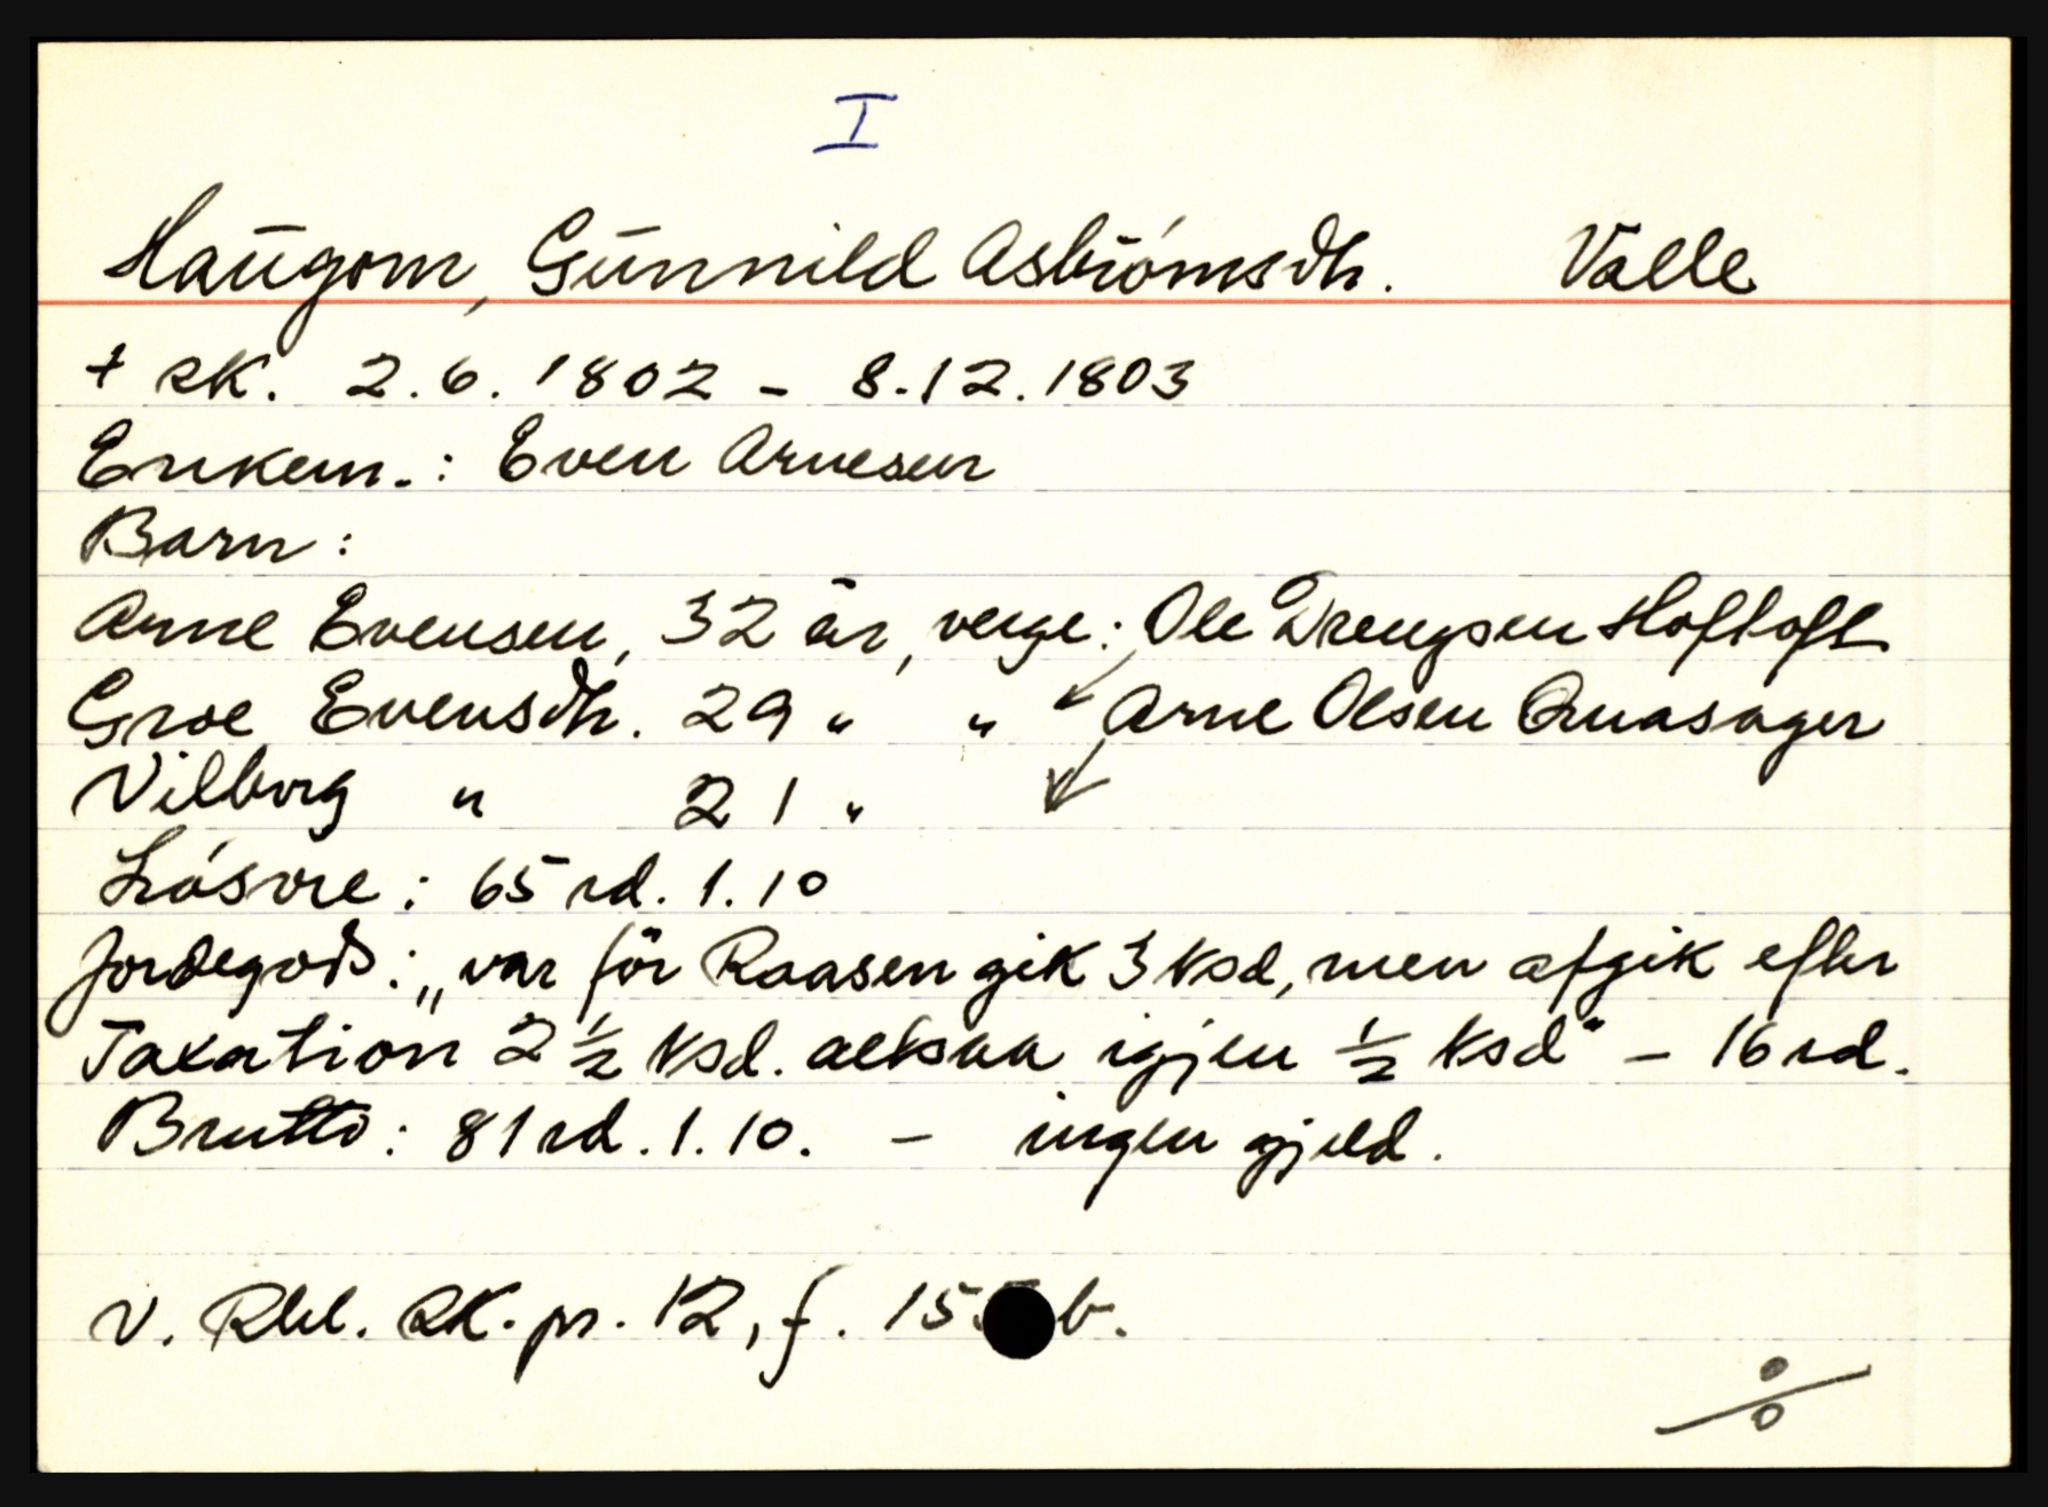 I
Haugom, Gunnild Asbiörnsdtr. Valle
+ sk. 2.6. 1802 - 8.12.1803
Enkem.: Even Arnesen
Barn:
Arne Evensen, 32 år, verge: Ole Drengsen Hoftoft
Groe Evensdtr. 29 " " Arne Olsen Quasager
Vilborg " 21 "
Lösöre: 65 rd. 1.10
Jordegods: „var för Raasen gik 3 ksd, men afgik efter
Taxation 2 1/2 ksd. altsaa igjen 1/2 ksd" - 16 rd.
Brutto: 81 rd. 1.10. - ingen gjeld.
V. Rbl. SK. pr. 12, f. 15 b.